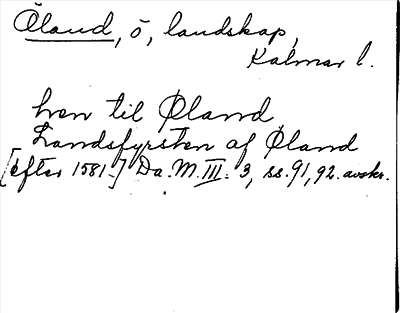 Öland, ö, landskap,
Kalmar l.
hen til Øland
Landsfyrsten af Øland
[efter 1581.] Da. M. III. 3, ss. 91, 92. avskr.